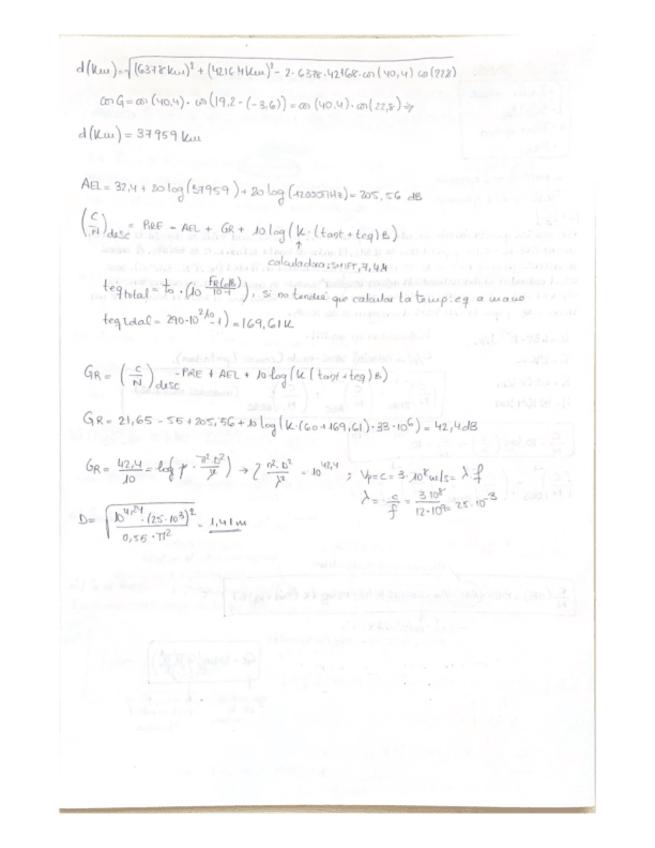 d(Km)=√(6378Km)² + (42164Km)² - 2·6378·42168·cos(40,4) cos(22,8)
cos G = cos(40,4)· cos(19,2-(-3,6)) = cos(40,4)·cos(22,8) ⇒
d(Km) = 37959 Km
AEL = 32,4 + 20 log(37959) + 20 log(12000MHz) = 205,56 dB
(C/N)desc = PIRE - AEL + GR + 10 log(K·(tant + teq) B)
↑
calculadora: SHIFT, 7, 44
teq total = to · (10^(FR(dB)/10) -1), si no tendré que calcular la temp. eq a mano
teq total = 290·10^(2/10) -1) = 169,61 K
GR = (C/N)desc - PIRE + AEL + 10 log(K (tant + teq) B)
GR = 21,65 - 55 + 205,56 + 10 log(K·(60+169,61)·33·10⁶) = 42,4 dB
GR = 42,4/10 = log(η · π²·D²/λ²) → η π²·D²/λ² = 10^42,4 ; Vp = c = 3·10⁸ m/s = λ f
λ = c/f = 3·10⁸/12·10⁹ = 25·10⁻³
D = √10^4,24 · (25·10³)²/0,55·π² = 1,41 m